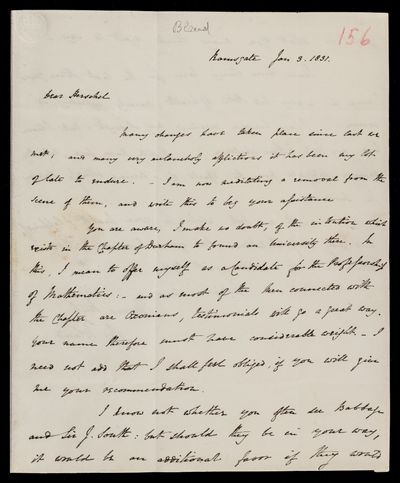 156
Ramsgate Jan 3. 1831.
Dear Herschel
Many changes have taken place since last we
met, and many very melancholy afflictions it has been my lot
of late to endure. - I am now meditating a removal from the
scene of them, and write this to beg your assistance
You are aware, I make no doubt, of the intention which
exists in the Chapter of Durham to found an University there. In
this, I mean to offer myself as a Candidate for the Professorship
of Mathematics: - and as most of the Men connected with
the Chapter are Oxonians, testimonials will go a great way.
Your name therefore must have considerable weight - I
need not add that I shall feel obliged, if you will give
me your recommendation.
I know not whether you often see Babbage
and Sir J. South: but should they be in your way,
it would be an additional favor if they would